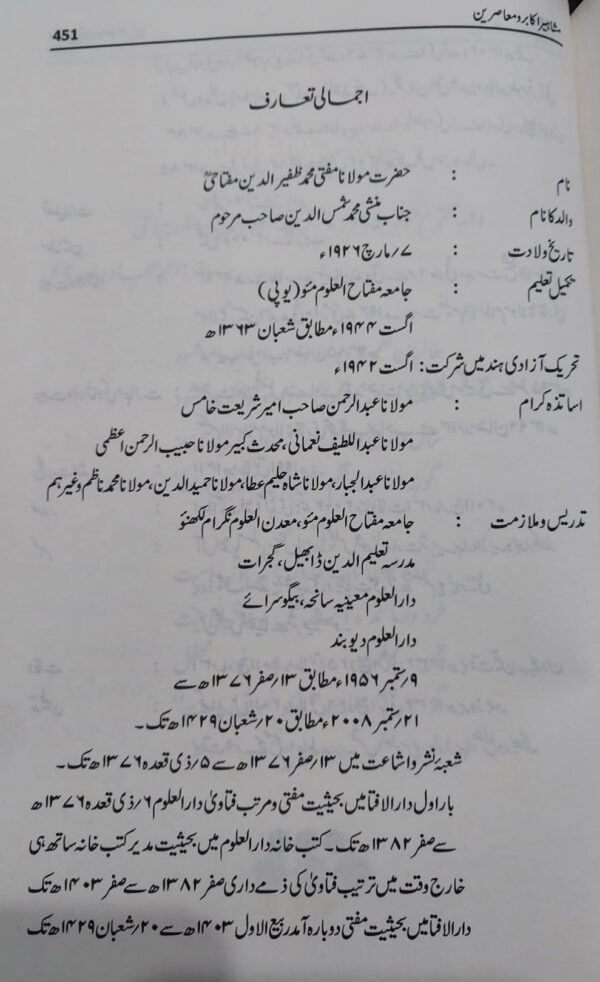 مشاہیر اکابر و معاصرین
451
اجمالی تعارف
نام : حضرت مولانا مفتی محمد ظفیر الدین مفتاحیؒ
والد کا نام : جناب منشی محمد شمس الدین صاحب مرحوم
تاریخ ولادت : ۷؍مارچ ۱۹۲۶ء
تکمیل تعلیم : جامعہ مفتاح العلوم مئو (یوپی)
اگست ۱۹۴۴ء مطابق شعبان ۱۳۶۳ھ
تحریک آزادی ہند میں شرکت : اگست ۱۹۴۲ء
اساتذہ کرام : مولانا عبد الرحمن صاحب امیر شریعت خامس
مولانا عبد اللطیف نعمانی، محدث کبیر مولانا حبیب الرحمن اعظمی
مولانا عبد الجبار، مولانا شاہ حلیم عطا، مولانا حمید الدین، مولانا محمد ناظم وغیرہم
تدریس و ملازمت : جامعہ مفتاح العلوم مئو، معدن العلوم نگرام لکھنؤ
مدرسہ تعلیم الدین ڈابھیل، گجرات
دار العلوم معینیہ سانحہ، بیگوسرائے
دار العلوم دیوبند
۹؍ستمبر ۱۹۵۶ء مطابق ۱۳؍صفر ۱۳۷۶ھ سے
۲۱؍ستمبر ۲۰۰۸ء مطابق ۲۰؍شعبان ۱۴۲۹ھ تک۔
شعبۂ نشر و اشاعت میں ۱۳؍صفر ۱۳۷۶ھ سے ۵؍ذی قعدہ ۱۳۷۶ھ تک۔
بار اول دار الافتا میں بحیثیت مفتی و مرتب فتاویٰ دار العلوم ۶؍ذی قعدہ ۱۳۷۶ھ
سے صفر ۱۳۸۲ھ تک۔ کتب خانہ دار العلوم میں بحیثیت مدیر کتب خانہ ساتھ ہی
خارج وقت میں ترتیب فتاویٰ کی ذمے داری صفر ۱۳۸۲ھ سے صفر ۱۴۰۳ھ تک
دار الافتا میں بحیثیت مفتی دوبارہ آمد ربیع الاول ۱۴۰۳ھ سے ۲۰؍شعبان ۱۴۲۹ھ تک